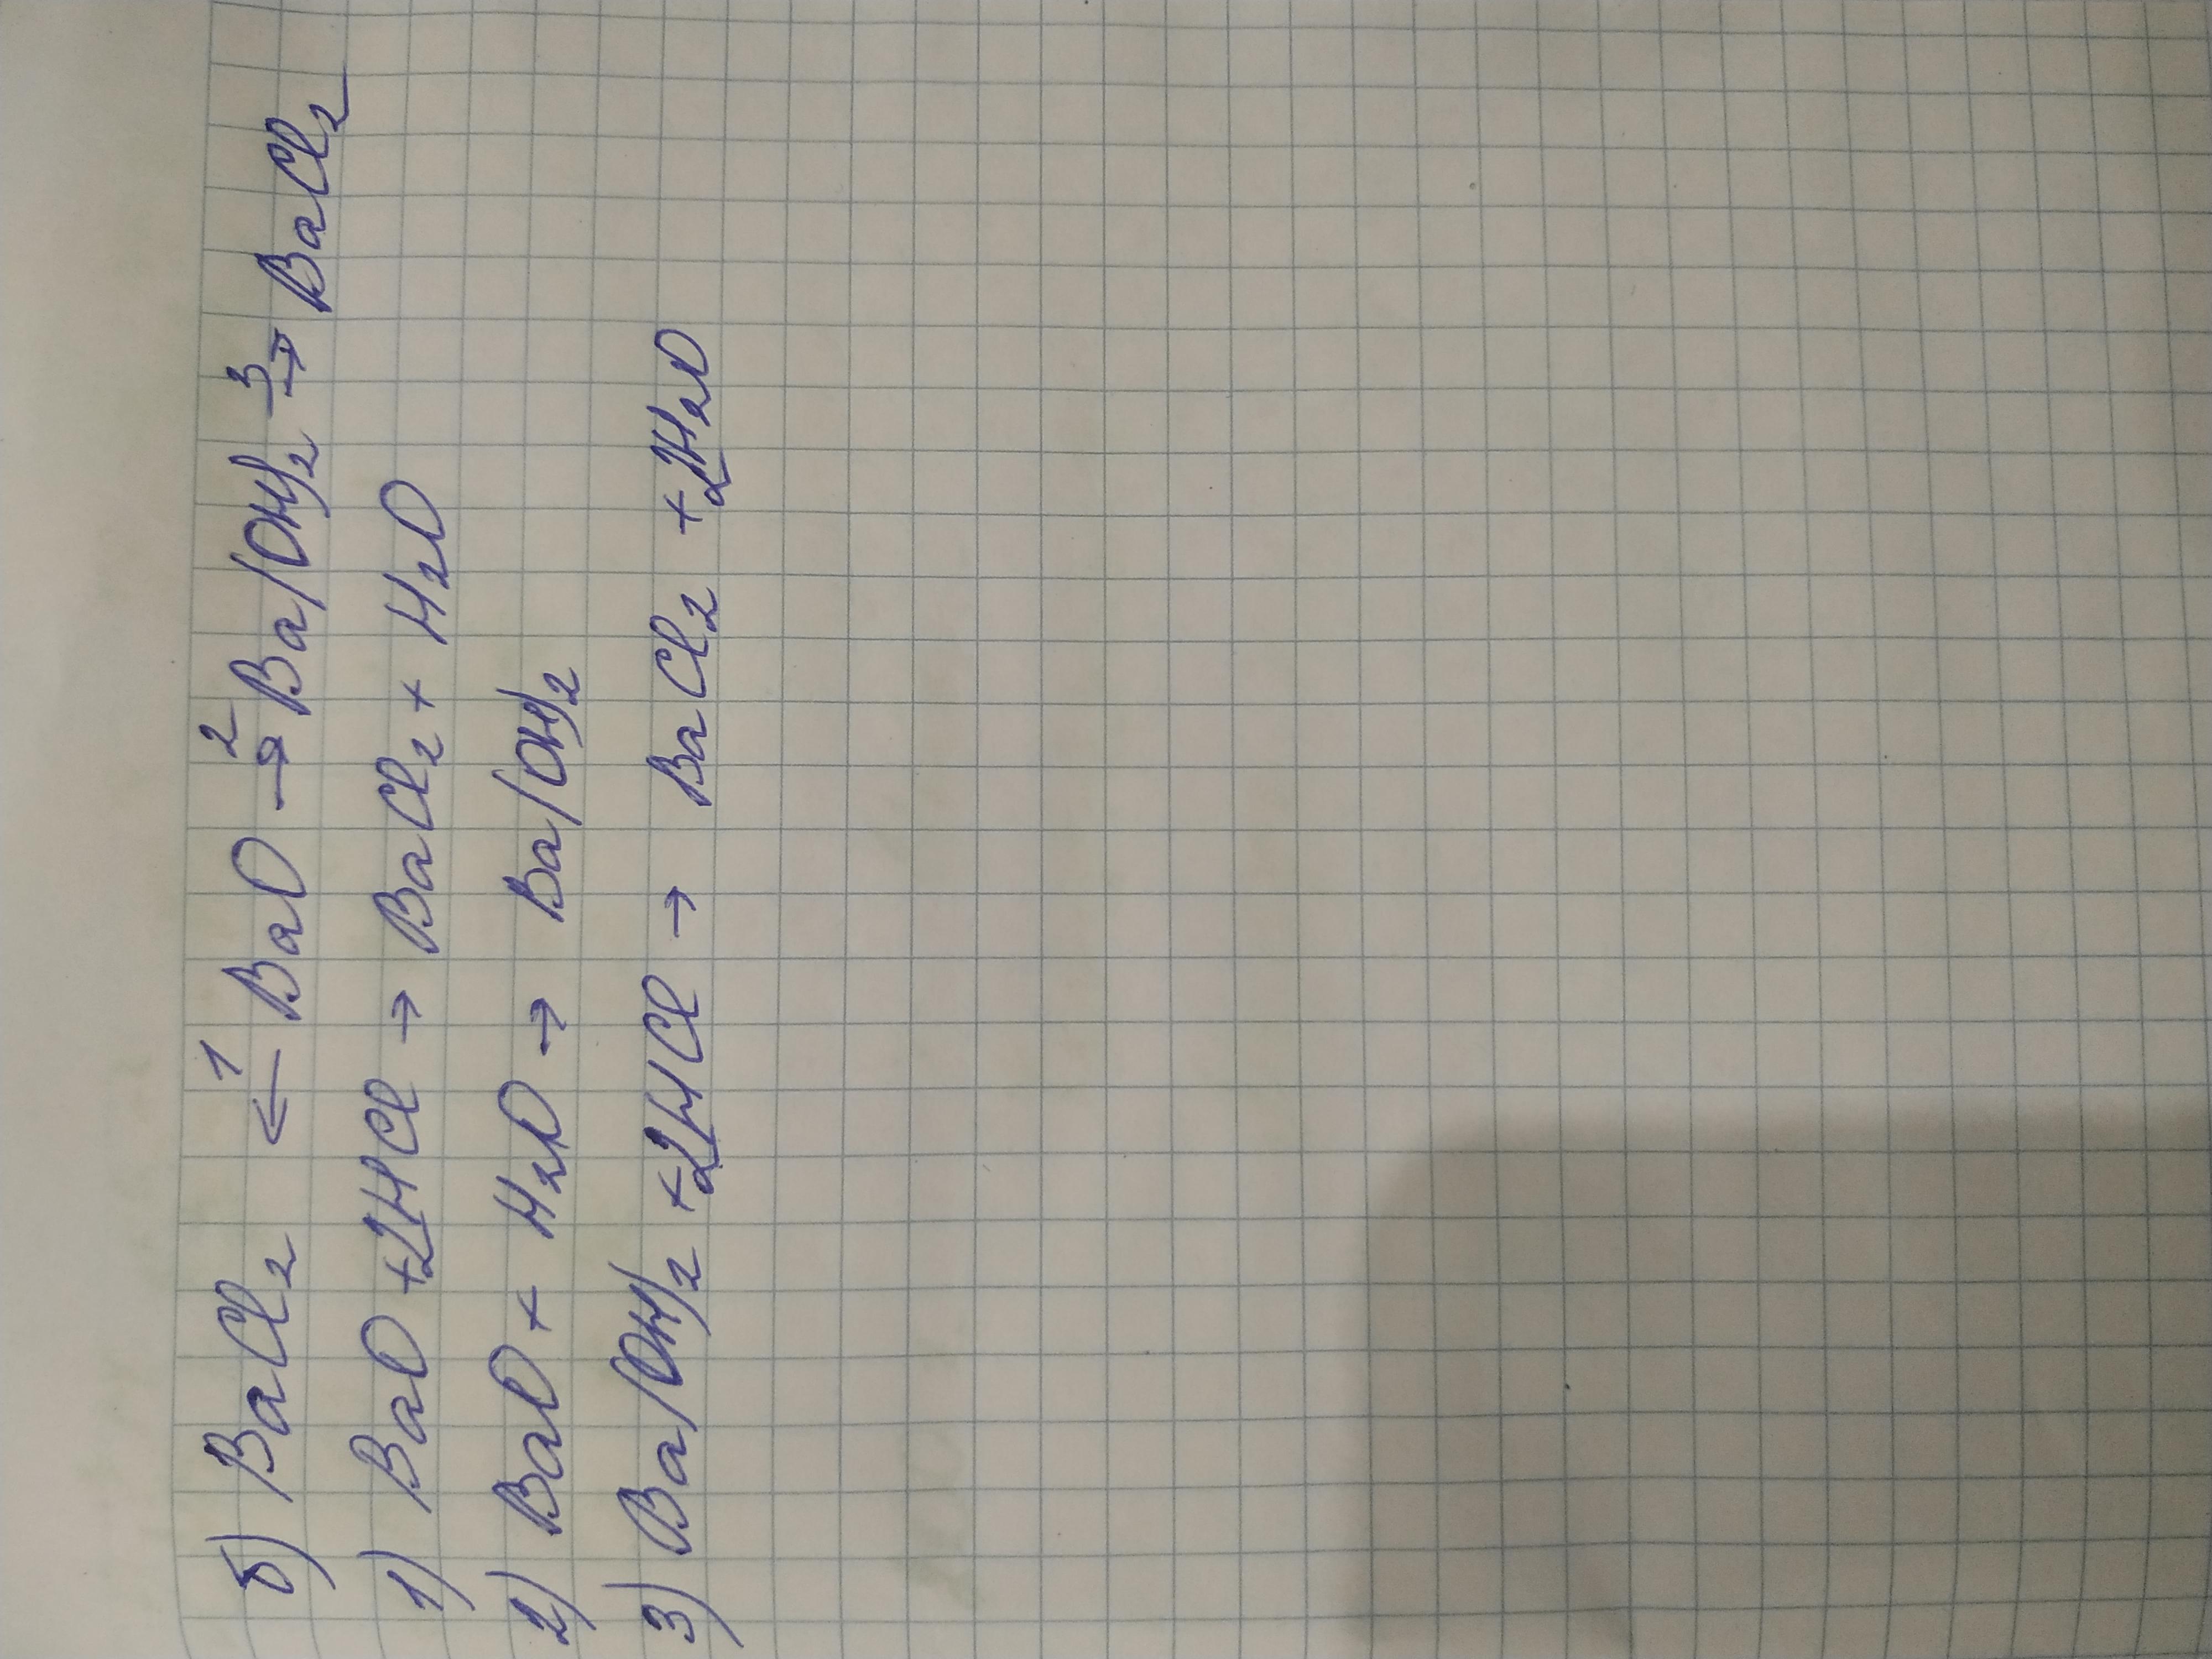 б) BaCl₂ ←¹ BaO →² Ba(OH)₂ →³ BaCl₂
1) BaO + 2HCl → BaCl₂ + H₂O
2) BaO + H₂O → Ba(OH)₂
3) Ba(OH)₂ + 2HCl → BaCl₂ + 2H₂O